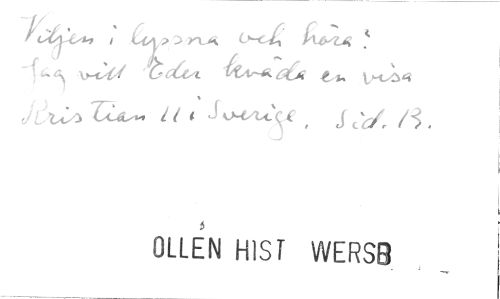 Viljen i lyssna och höra?
Jag vill Eder kväda en visa
Kristian II i Sverige. Sid. 13.
OLLÉN HIST WERSB